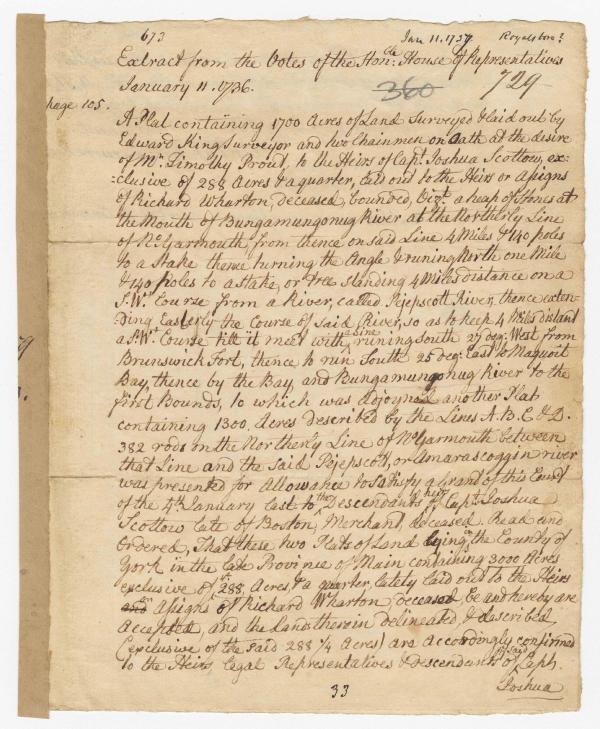 673
Jan 11. 1737
Extract from the Votes of the Hon.ble House of Representatives
January 11. 1736.
360
729
page 105.
A Plat containing 1700 Acres of Land Surveyed & laid out by
Edward King Surveyor and two Chainmen on Oath at the desire
of Mr. Timothy Prout, to the Heirs of Capt. Joshua Scottow, ex-
-clusive of 288 Acres & a quarter, laid out to the Heirs or Asigns
of Richard Wharton, deceased, bounded, Vizt. a heap of Stones at
the Mouth of Bungamungonug River at the Northerly Line
of No. Yarmouth, from thence on said Line 4 Miles & 140 poles
to a Stake thence turning the Angle & runing North one Mile
& 140 poles to a Stake, or tree standing 4 Miles distance on a
S. Wt. Course from a River, called Pejepscott River, thence exten-
-ding Easterly the Course of said River, so as to keep 4 Miles distand
a S. Wt. Course till it meet with a Line runing South 27 deg. West from
Brunswick Fort, thence to run South 25 deg. East to Maquoit
Bay, thence by the Bay, and Bungamungonug River to the
first Bounds, to which was Adjoyned another Plat
containing 1300. Acres described by the Lines A. B. C. & D.
382 rods on the Northerly Line of No. Yarmouth between
that Line and the said Pejepscot, or Amarascoggin river
was presented for Allowance to Satisfy a Grant of this Court
of the 4th January last to the Descendants & heirs of Capt. Joshua
Scottow late of Boston, Merchant, deceased. Read and
Ordered, That these two Plats of Land lying in the County of
York in the late Province of Main containing 3000 Acres
exclusive of ye 288 Acres, & a quarter, lately laid out to the Heirs
Asigns of Richard Wharton, deceased be and hereby are
Accepted, and the Lands therein delineated, & described,
(exclusive of the said 288 1/4 Acres) are Accordingly confirmed
to the Heirs, legal Representatives & descendants of ye said Capt.
Joshua
33